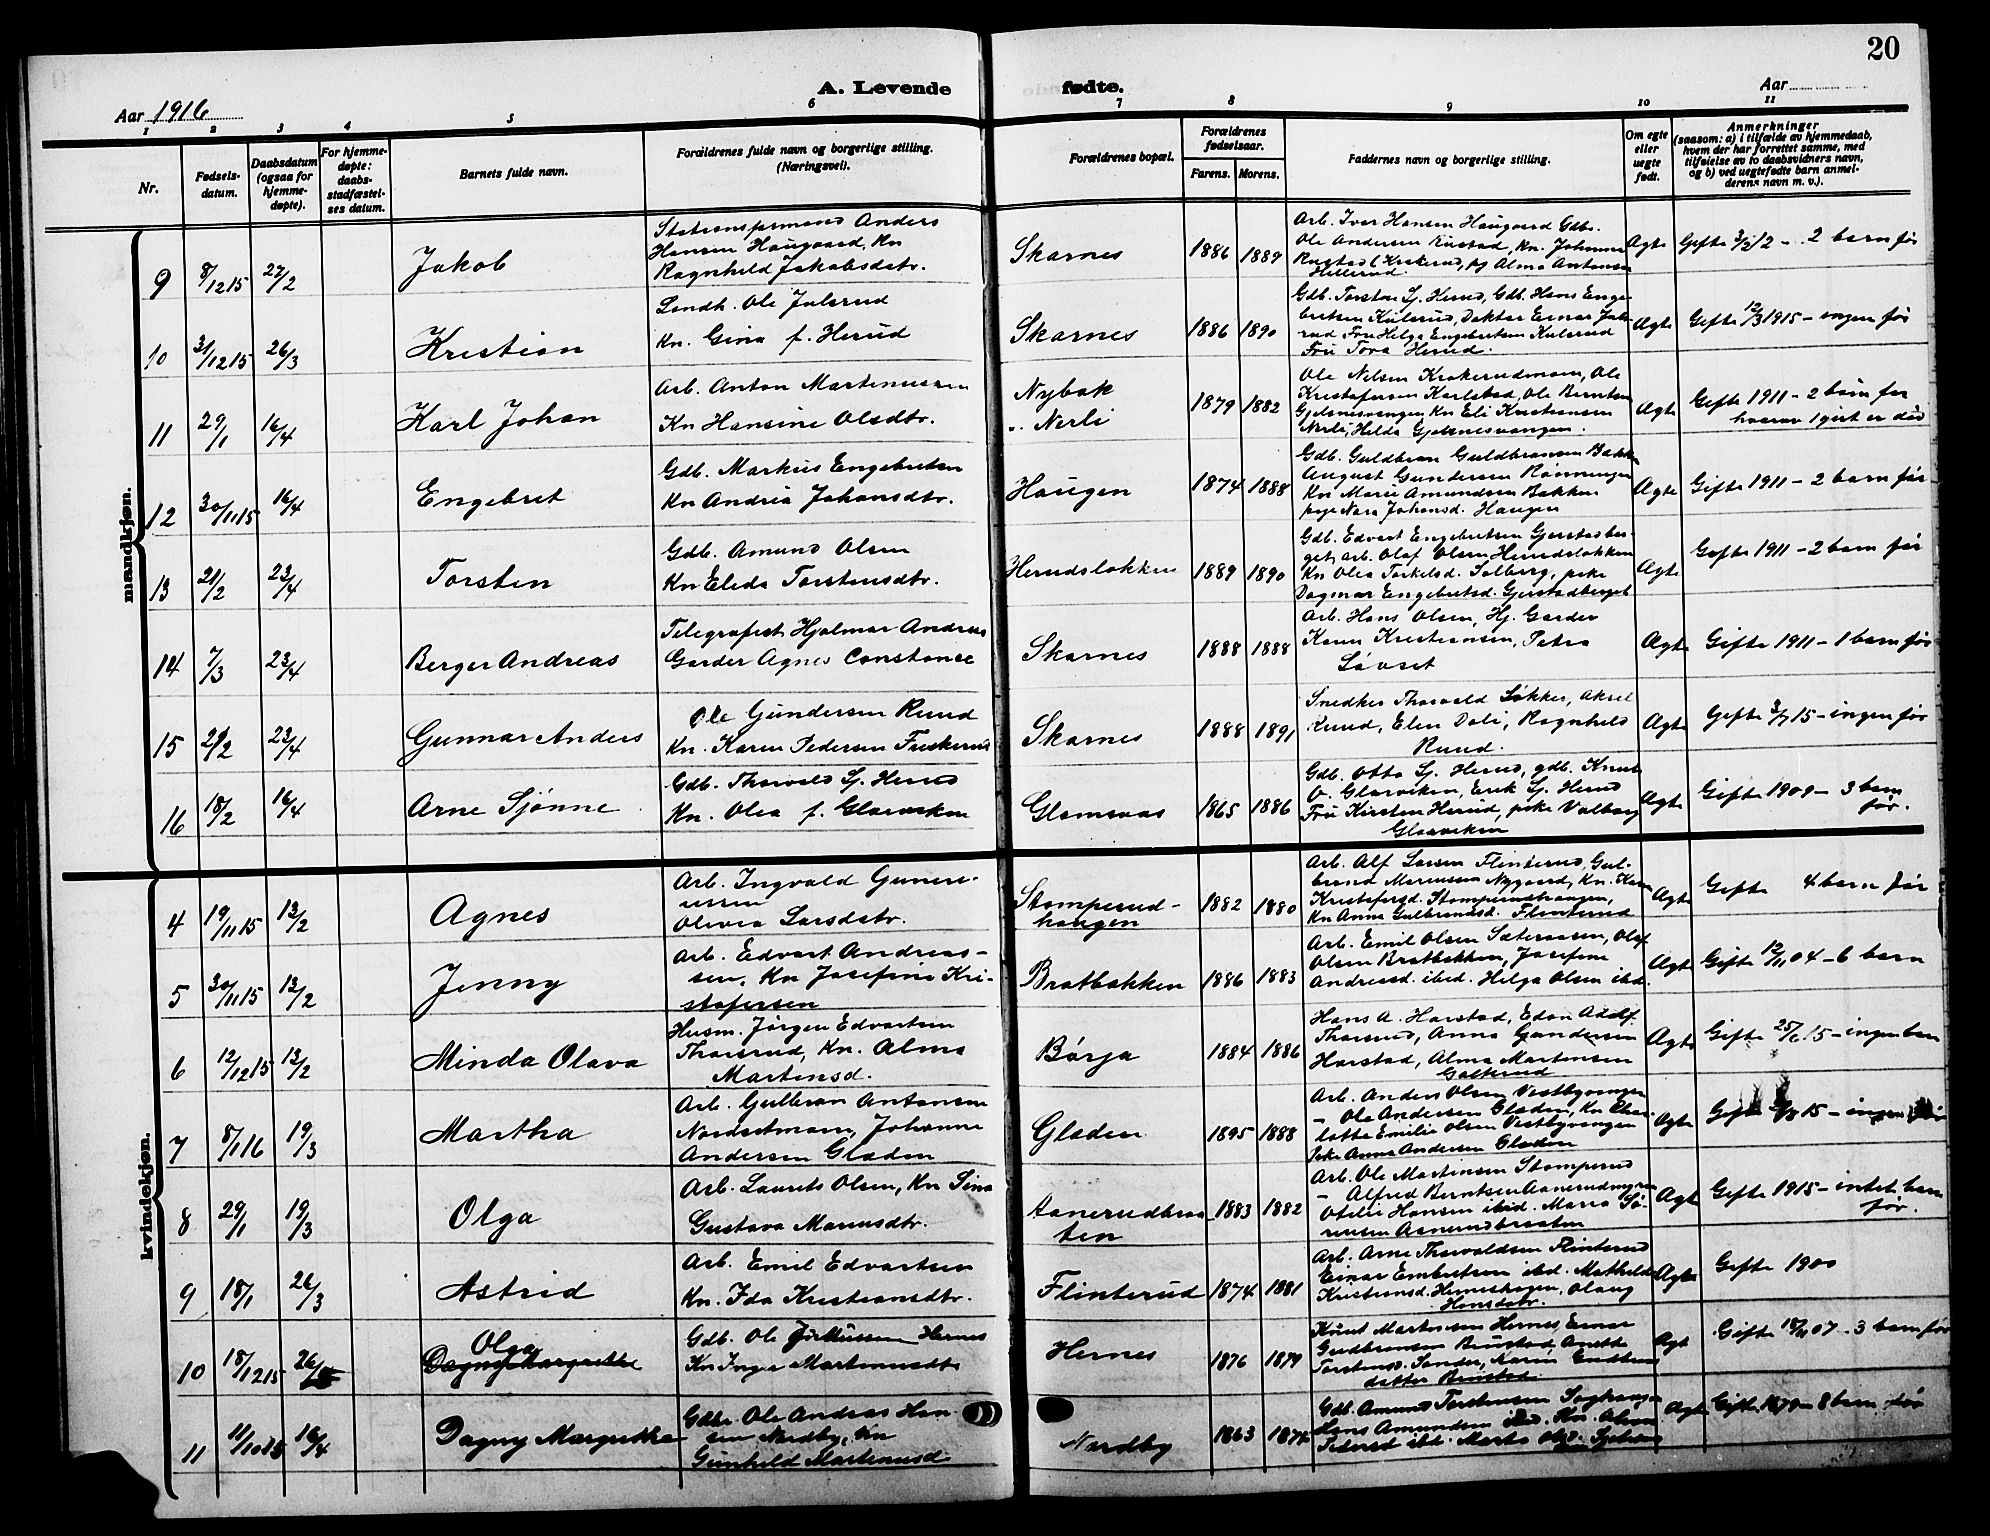 20
A. Levende fødte.
Aar 1916
Aar
1 2 3 4 5 6 7 8 9 10 11
Nr.
Fødsels-
datum.
Daabsdatum
(ogsaa for
hjemme-
døpte).
For hjemme-
døpte:
daabs-
stadfæstel-
ses datum.
Barnets fulde navn.
Forældrenes fulde navn og borgerlige stilling.
(Næringsvei).
Forældrenes bopæl.
Forældrenes
fødselsaar.
Farens. Morens.
Faddernes navn og borgerlige stilling.
Om egte
eller
uegte
født.
Anmerkninger
(saasom: a) i tilfælde av hjemmedaab,
hvem der har forrettet samme, med
tilføielse av to daabsvidners navn,
og b) ved uegtefødte barn anmel-
derens navn m. v.).
mandkjøn.
9 8/12 15 27/2 Jakob
Stationsformand Anders
Hansen Haugaard, Kn
Ragnhild Jakobsdtr.
Skarnes 1886 1889
Arb. Ivar Hansen Haugaard Gdb.
Ole Andersen Rustad, Kn. Johanne
Alma Antonsen
Hellerud.
Ægte Gifte 3/2 12 - 2 barn før
10 31/12 15 26/3 Kristian
Landh. Ole Julsrud
Kn. Gina f. Herud
Skarnes 1886 1890
Gdb. Torsten Sj. Herud, Gdb. Hans Enge-
bretsen Kulsrud, Doktor Einar Juls-
rud Fru Helga Engebretsen Kulsrud
Fru Tora Herud.
Ægte Gifte 12/3 1915 - ingen før
11 29/1 16/4 Karl Johan
Arb. Anton Martinussen
Kn Hansine Olsdtr.
Nybak
Nerli
1879 1882
Ole Nilsen Krokerudmoen, Ole
Kristofersen Karlstad, Ole Berntsen
Gjølsnesvangen Kn Eli Kristiansen
Nerli, Hilda Gjølsnesvangen.
Ægte Gifte 1911 - 2 barn før
hvorav 1 gut er død
12 30/11 15 16/4 Engebret
Gdb. Markus Engebretsen
Kn Andrea Johansdtr.
Haugen 1874 1888
Gdb. Guldbran Guldbransen Bakken
August Gundersen Rønningen
Kn Marie Amundsen Bakken
pige Nora Johansd. Haugen
Ægte Gifte 1911 - 2 barn før
13 21/2 23/4 Torsten
Gdb. Amund Olsen
Kn Elida Torstensdtr.
Herudsløkken 1889 1890
Gdb. Edvart Engebretsen Gjerstadber-
get, Arb. Olaf Olsen Herudsløkken
Kn Olea Torkelsd. Solberg, pike
Dagmar Engebretsd. Gjerstadberget
Ægte Gifte 1911 - 2 barn før
14 7/3 23/4 Berger Andreas
Telegrafist Hjalmar Andreas
Garder Agnes Constance
Skarnes 1888 1888
Arb. Hans Olsen, Hj. Garder
Karen Kristiansen, Petra
Løvset
Ægte Gifte 1911 - 1 barn før
15 29/2 23/4 Gunnar Anders
Ole Gundersen Ruud
Kn. Karen Pedersen Fuskerud
Skarnes 1888 1891
Snedker Thorvald Løkker, Aksel
Ruud, Elen Doli, Ragnhild
Ruud.
Ægte Gifte 3/7 15 - ingen før
16 18/2 16/4 Arne Sjønne
Gdb. Thorvald Sj. Herud
Kn. Olea f. Glorviken
Glomsaas 1865 1886
Gdb. Otto Sj. Herud, gdb. Knut
O. Glorviken, Erik Sj. Herud
Fru Kirsten Herud, pike Valborg
Glorviken
Ægte Gifte 1909 - 3 barn
før.
kvindekjøn.
4 19/11 15 13/2 Agnes
Arb. Ingvald Guneri-
ussen
Olivia Larsdatr.
Stomperud-
haugen
1882 1880
Arb. Alf Larsen Flinterud, Gul-
brand Mariussen Nygaard, Kn. Karen
Kristofersd. Stomperudhaugen,
Kn Anna Gulbrandsd. Flinterud
Ægte Gifte 4 barn før
5 30/11 15 13/2 Jenny
Arb. Edvart Andreas-
sen, Kn Josefine Kri-
stofersen
Bratbakken 1886 1883
Arb. Emil Olsen Sæteraasen, Olaf
Olsen Bratbakken, Josefine
Andreasd. ibid. Helga Olsen ibd.
Ægte Gifte 12/11 04 - 6 barn
6 12/12 15 13/2 Minda Olava
Husm. Jørgen Edvartsen
Thorsrud, Kn. Alma
Martensd.
Børja 1884 1886
Hans A. Harstad, Edon Adolf
Thorsrud, Anna Gundersen
Harstad, Alma Martensen
Galterud
Ægte Gifte 25/6 15 - ingen barn
7 8/1 16 19/3 Martha
Arb. Gulbran Antonsen
Nordsetmoen, Johanne
Andersen Gladen
Gladen 1895 1888
Arb. Anders Olsen Vestbyvangen
- Ole Andersen Gladen, Kn Char-
lotte Emilie Olsen Vestbyvangen
Pike Anna Andersen Gladen
Ægte Gifte 15 - ingen før
8 29/1 19/3 Olga
Arb. Laurits Olsen, Kn Sina
Gustava Mariusdtr.
Aanerudbraa-
ten
1883 1882
Arb. Ole Martinsen Stomperud
- Alfred Berntsen Aanerudmyren
Otelie Hansen ibid. Maria Sø-
rensen Aanerudbraaten
Ægte Gifte 1915 - intet barn
før.
9 18/1 26/3 Astrid
Arb. Emil Edvartsen
Kn. Ida Kristiansdtr.
Flinterud 1874 1881
Arb. Arne Thorvaldsen Flinterud
Einar Embretsen ibd. Mathilde
Kristiansd. Herneshagen, Olaug
Hansdtr.
Ægte Gifte 1900
10 18/12 15 26/3 Olga
Dagny Margrethe
Gdb. Ole Hernes
Kn Inga Martinusdtr
Hernes 1876 1879
Knut Martinsen Hernes, Einar
Gudbrandsen Brustad, Anette
Torstensd. Sander, Karen Gudbrans
datter Brustad.
Ægt Gifte 18/11 07 - 3 barn før
11 11/10 15 16/4 Dagny Margrethe
Gdbr. Ole Andreas Han-
sen Nordby, Kn
Gunhild Martinusd.
Nordby 1863 1874
Gdb. Amund Torstensen
Hans Amundsen ibd. Kn. Olava
Pedersd ibd. Marta Olsd.
Ægte - 8 barn før